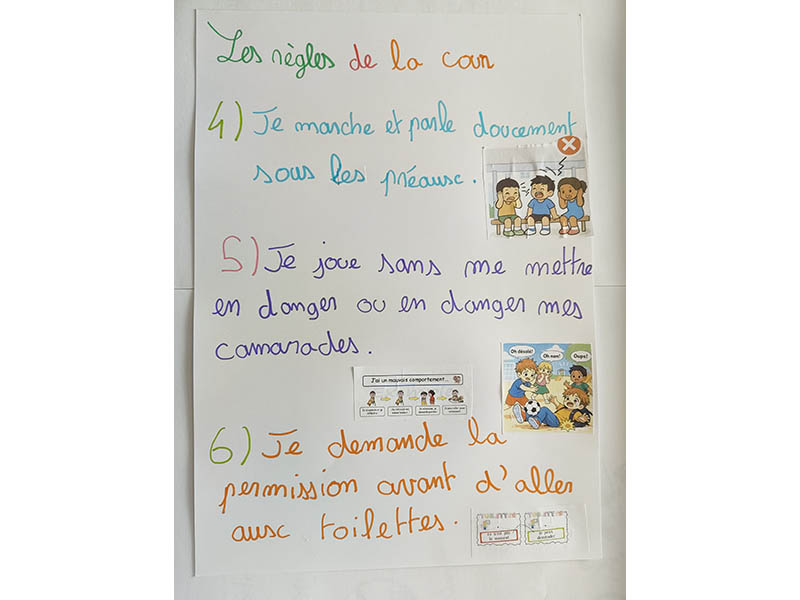 Les règles de la cour
4) Je marche et parle doucement
sous les préaux.
5) Je joue sans me mettre
en danger ou en danger mes
camarades.
Oh désolé! Oh non! Oups!
J'ai un mauvais comportement...
6) Je demande la
permission avant d'aller
aux toilettes.
Ce n'est pas
le moment
Je peux
demander